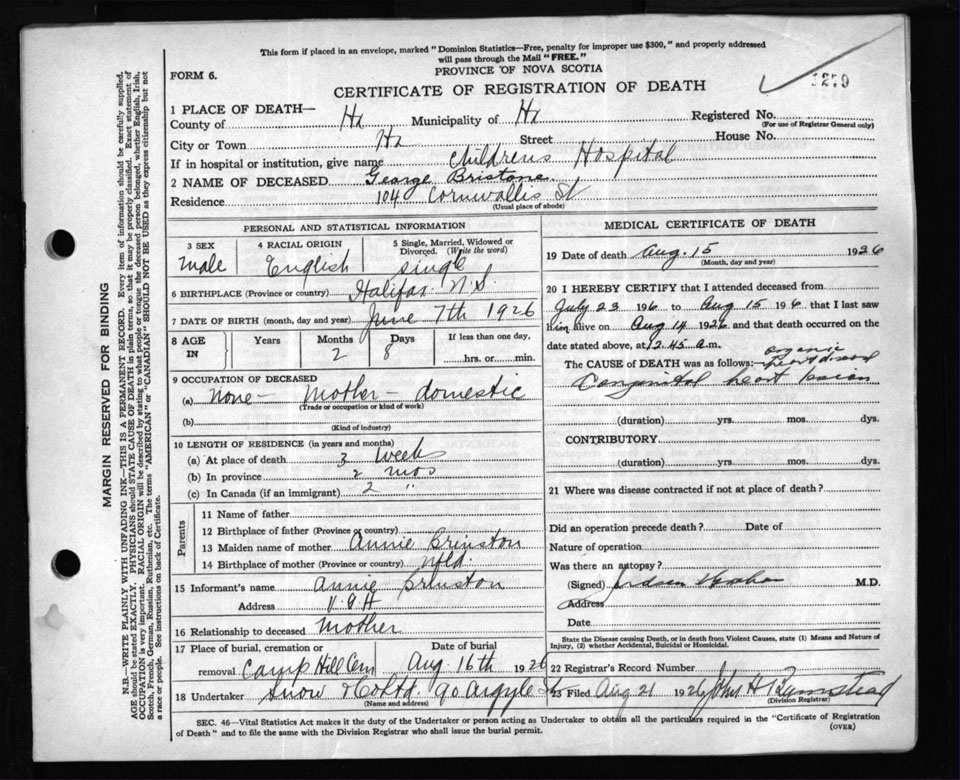 This form if placed in an envelope, marked "Dominion Statistics—Free, penalty for improper use $300," and properly addressed
will pass through the Mail "FREE."
PROVINCE OF NOVA SCOTIA
FORM 6.
1279
CERTIFICATE OF REGISTRATION OF DEATH
1 PLACE OF DEATH—
County of Hx Municipality of Hx Registered No.
(For use of Registrar General only)
City or Town Hx Street House No.
If in hospital or institution, give name Childrens Hospital
2 NAME OF DECEASED George Bristone
Residence 104 Cornwallis St
(Usual place of abode)
PERSONAL AND STATISTICAL INFORMATION
3 SEX
Male
4 RACIAL ORIGIN
English
5 Single, Married, Widowed or
Divorced. (Write the word)
single
6 BIRTHPLACE (Province or country) Halifax N.S.
7 DATE OF BIRTH (month, day and year) June 7th 1926
8 AGE
IN
Years
Months
2
Days
8
If less than one day,
hrs. or min.
9 OCCUPATION OF DECEASED
(a) none— Mother — domestic
(Trade or occupation or kind of work)
(b)
(Kind of industry)
10 LENGTH OF RESIDENCE (in years and months)
(a) At place of death 3 weeks
(b) In province 2 mos
(c) In Canada (if an immigrant) 2 "
Parents
11 Name of father
12 Birthplace of father (Province or country)
13 Maiden name of mother Annie Brinston
14 Birthplace of mother (Province or country) Nfld.
15 Informant's name Annie Brinston
Address V.G.H
16 Relationship to deceased Mother
17 Place of burial, cremation or
removal Camp Hill Cem
Date of burial
Aug 16th 1926
18 Undertaker Snow & Co Ltd 90 Argyle St
(Name and address)
MEDICAL CERTIFICATE OF DEATH
19 Date of death Aug. 15 1926
(Month, day and year)
20 I HEREBY CERTIFY that I attended deceased from
July 23 1926 to Aug 15 1926 that I last saw
him alive on Aug 14 1926 and that death occurred on
date stated above, at 12.45 a.m.
The CAUSE of DEATH was as follows: organic
heart disease
Congenital heart lesion
(duration) yrs. mos. dys.
CONTRIBUTORY
(duration) yrs. mos. dys.
21 Where was disease contracted if not at place of death?
Did an operation precede death? Date of
Nature of operation
Was there an autopsy?
(Signed) M.D.
Address
Date
State the Disease causing Death, or in death from Violent Causes, state (1) Means and Nature of
Injury, (2) whether Accidental, Suicidal or Homicidal.
22 Registrar's Record Number
23 Filed Aug 21 1926 John H
(Division Registrar)
SEC. 46—Vital Statistics Act makes it the duty of the Undertaker or person acting as Undertaker to obtain all the particulars required in the "Certificate of Registration
of Death" and to file the same with the Division Registrar who shall issue the burial permit.
(OVER)
MARGIN RESERVED FOR BINDING
N.B.—WRITE PLAINLY WITH UNFADING INK—THIS IS A PERMANENT RECORD. Every item of information should be carefully supplied.
AGE should be stated EXACTLY. PHYSICIANS should STATE CAUSE OF DEATH in plain terms, so that it may be properly classified. Exact statement of
OCCUPATION is very important. RACIAL ORIGIN will be described by stating to what people or tongue the deceased person belonged, whether English, Irish,
Scotch, French, German, Russian, Ruthenian, etc. The terms "AMERICAN" or "CANADIAN" SHOULD NOT BE USED as they express citizenship but not
a race or people. See instructions on back of Certificate.